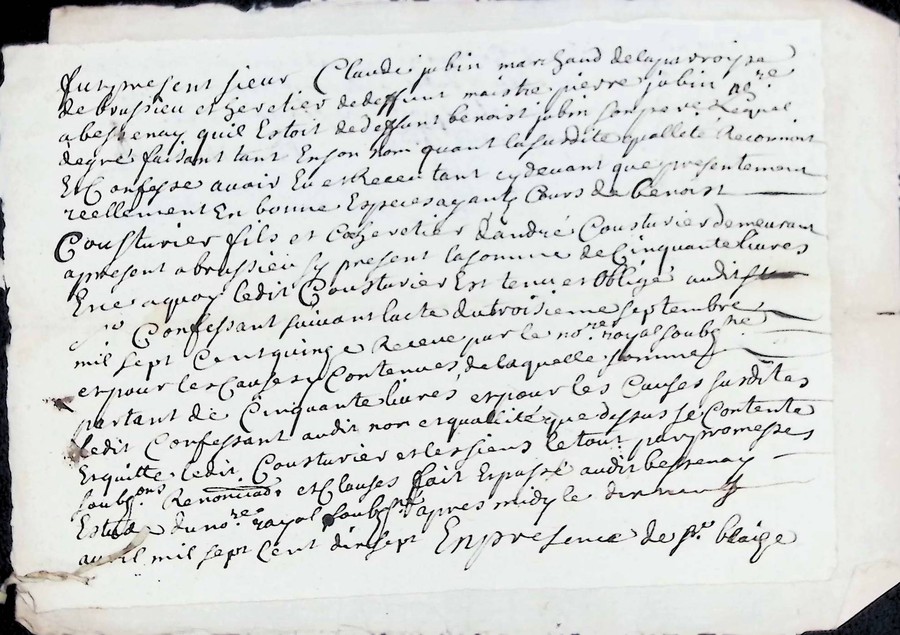 fut present sieur Claude jubin marchand de la parroisse
de brussieu et heretier de deffunt maistre pierre jubin nre
a bessenay quil Estoit de deffunt benoist jubin son pere Lequel
de gré faisant tant En son nom quant la susdite quallité Reconnoit
Et Confesse avoir Eu et Receu tant cy devant que presentement
reellement En bonne Especes ayant Cours de benoist
Cousturier fils et Coheretier dandré Cousturier demeurant
a present a brussieu cy present la somme de Cinquante livres
En ce a quoy ledit Cousturier Est tenu et obligé audit Sr
Confessant suivant lacte du troisieme septembre
mil sept Cent quinze Receue par le nore royal soubzne
et pour les Causes y Contenues de laquelle somme
partant de Cinquante livres et pour les Causes susdites
ledit Confessant audit nom et qualité que dessus se Contente
Et quitte ledit Cousturier et les siens le tout par promesses
soubzons Renonciaôs et Clauses fait Et passé audit bessenay
Estude du nore royal soubzné apres midy le dix neuf
avril mil sept Cent dix sept En presence de sr blaize